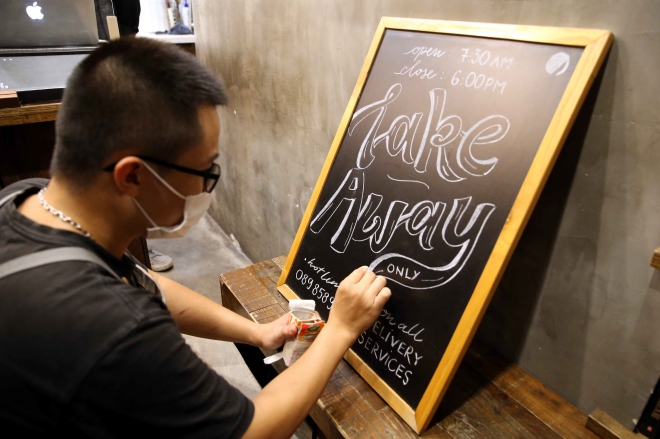 open: 7:30AM
close: 6:00PM
Take
Away
ONLY
089 8589
on all
DELIVERY
SERVICES